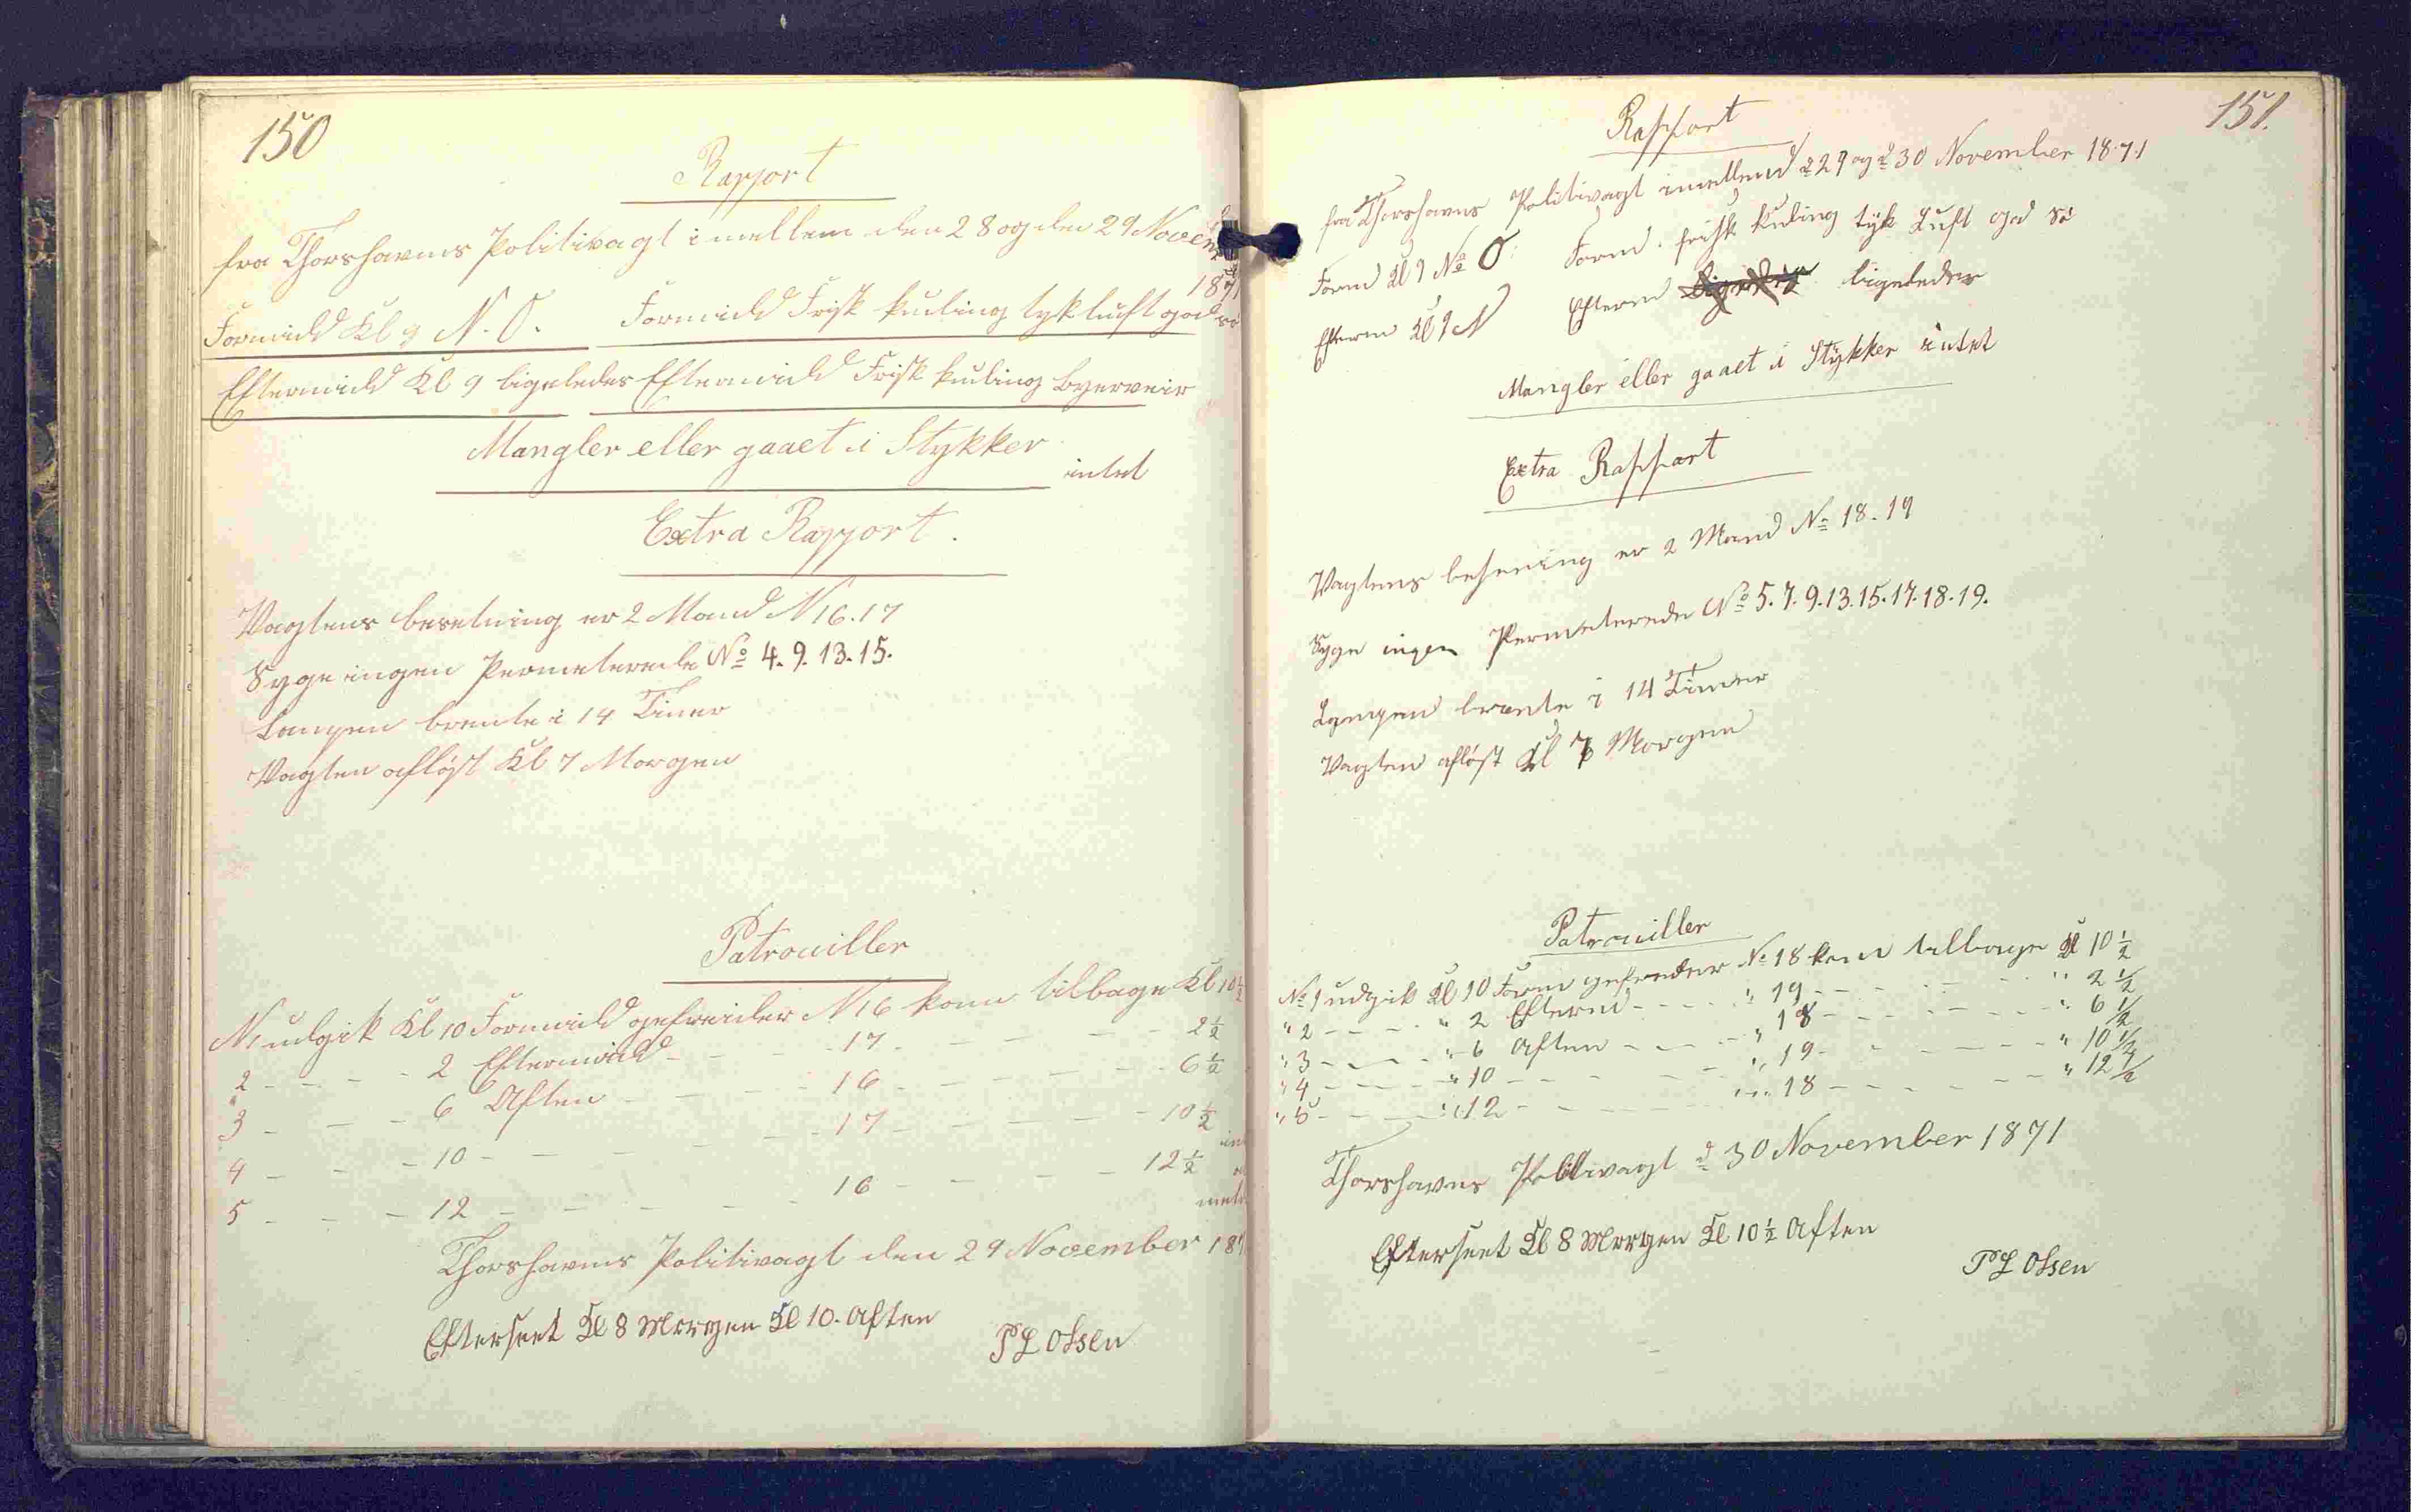 150
Rapport
fra Thorshavns Politivagt imellem den 28 og den 29 Novem
1871
Formidd Kl 9 N. O. Formidd Frisk kuling tyk luft god sö
Eftermidd Kl 9 ligeledes Eftermidd Frisk kuling byerveir
Mangler eller gaaet i Stykker intet
Extra Rapport.
Vagtens besetning er 2 Mand N 16. 17
Syge ingen Permeterede No 4. 9. 13. 15.
Lampen brente i 14 Timer
Vagten aflöst Kl 7 Morgen
Patrouiller
N 1 udgik Kl 10 Formidd gefreider N 16 kom tilbage Kl 10 ½
2 - - - - 2 Eftermidd - - - 17 - - - - 2 ½
3 - - - 6 Aften - - - 16 - - - - 6 ½
4 - - - 10 - - - - - 17 - - - - 10 ½
5 - - - 12 - - - - - 16 - - - - 12 ½
Thorshavns Politivagt den 29 November 187
Efterseet Kl 8 Morgen Kl 10. Aften
P L Olsen
151.
Rapport
fra Thorshavns Politivagt imellem d 29 og d 30 November 1871
Form Kl 9 No O: Form. frisk kuling tyk Luft god Sö
Efterm Kl 9 N Efterm ligeledes
Mangler eller gaaet i Stykker intet
Extra Rapport
Vagtens besetning er 2 Mand No 18. 19
Syge ingen Permeterede No 5. 7. 9. 13. 15. 17. 18. 19.
Lampen brente i 14 Timer
Vagten aflöst Kl 7 Morgen
Patrouiller
No 1 udgik Kl 10 Form gefreider No 18 kom tilbage Kl 10 ½
" 2 - - - - " 2 Efterm - - - - " 19 - - - - - " 2 ½
" 3 - - - - " 6 Aften - - - " 18 - - - - - " 6 ½
" 4 - - - - " 10 - - - - - " 19 - - - - - " 10 ½
" 5 - - - - " 12 - - - - - " 18 - - - - - " 12 ½
Thorshavns Politivagt d 30 November 1871
Efterseet Kl 8 Morgen Kl 10 ½ Aften
P L Olsen